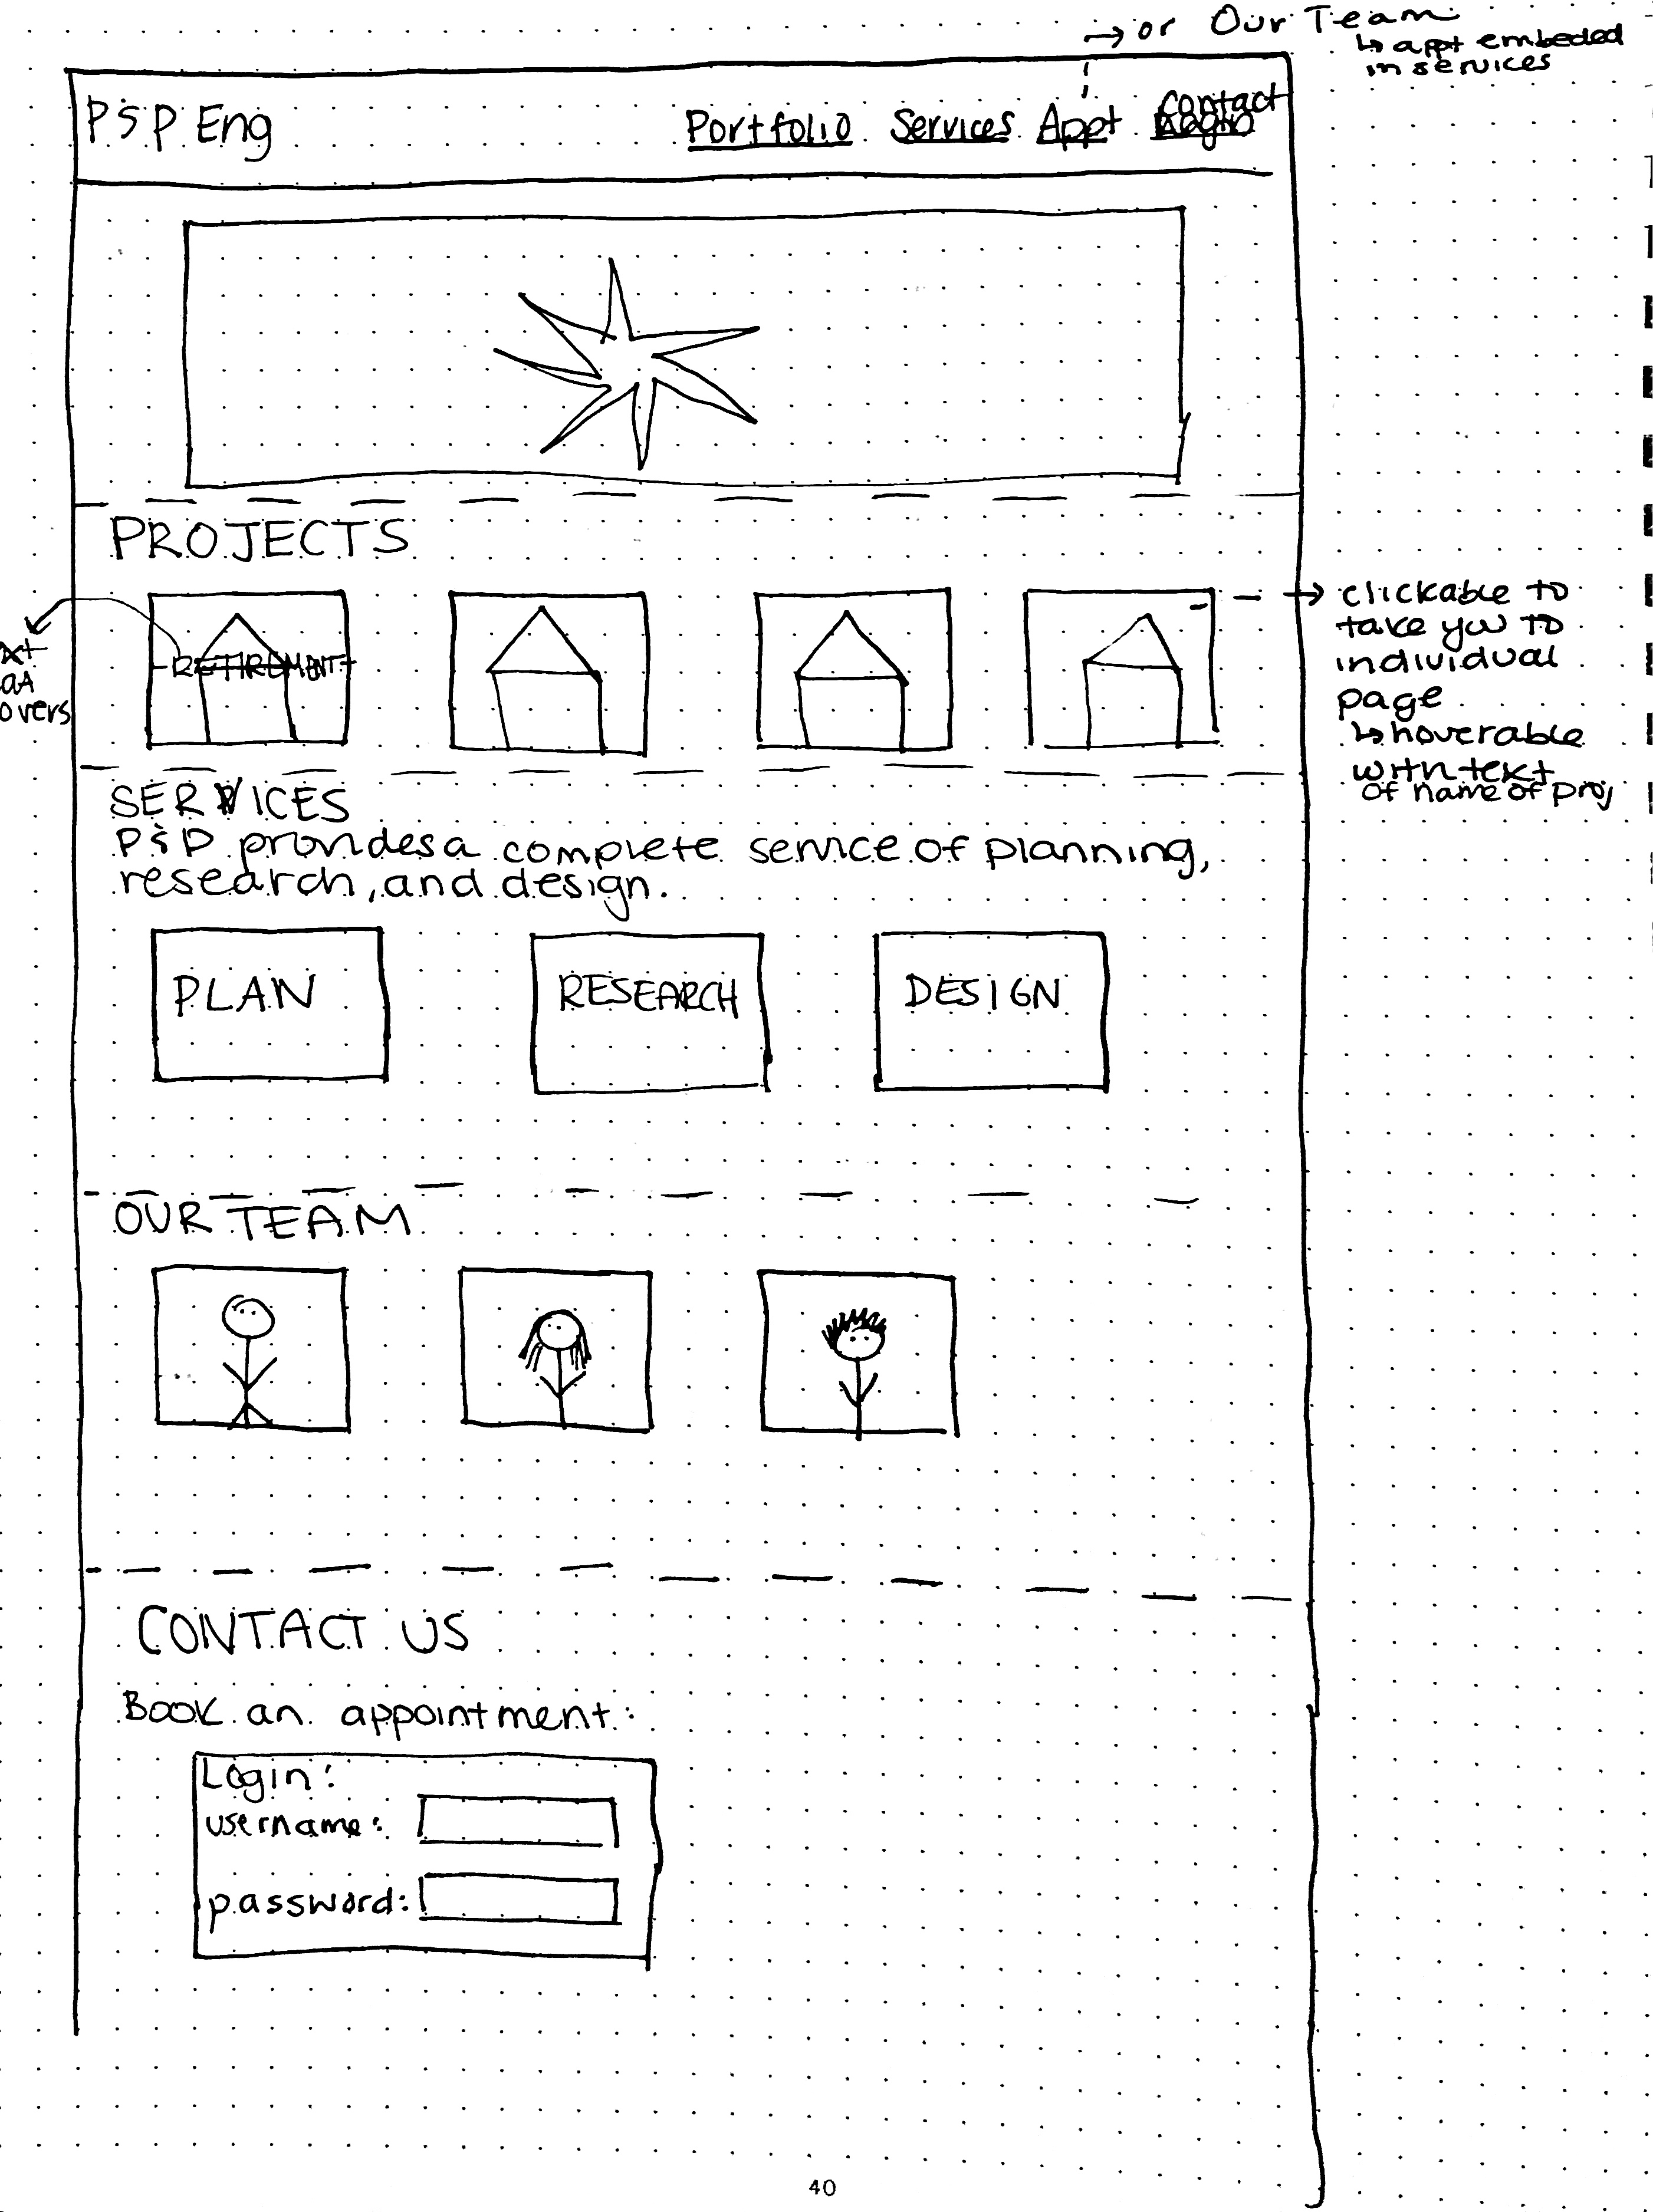 → or Our Team
↳ appt embeded
in services
PSP Eng
Portfolio Services Appt Contact
PROJECTS
RETIREMENT
overs
→ clickable to
take you to
individual
page
↳ hoverable
with text
of name of proj
SERVICES
P&P provides a complete service of planning,
research, and design.
PLAN RESEARCH DESIGN
OUR TEAM
CONTACT US
Book an appointment:
Login:
username:
password:
40